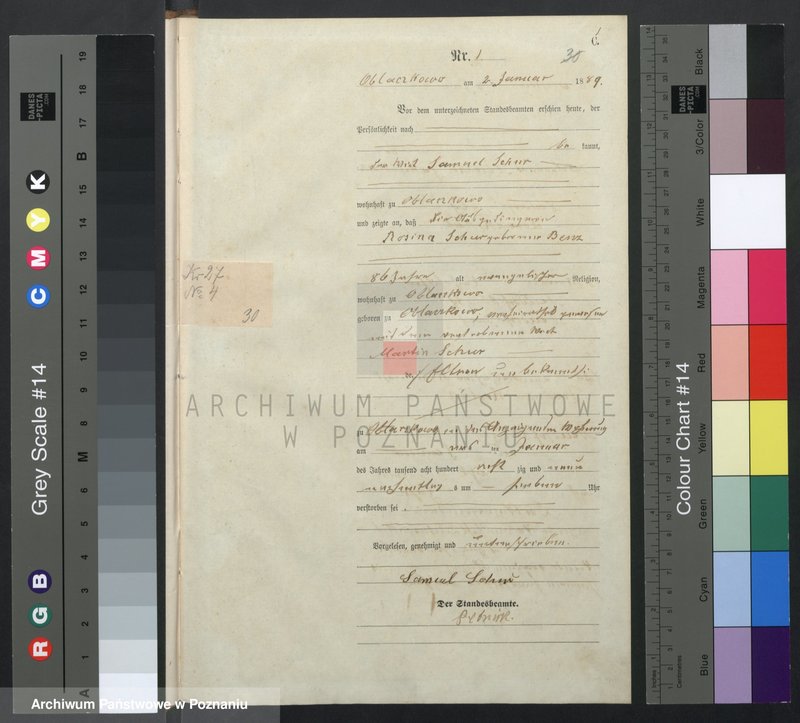 C.
Nr. 1
30
Oblaczkowo am 2. Januar 1889.
Vor dem unterzeichneten Standesbeamten erschien heute, der
Persönlichkeit nach
be kannt,
der Wirt Samuel Schur
wohnhaft zu Oblaczkowo
und zeigte an, daß die
Rosina Schur geborene Benz
86 Jahre alt evangelischer Religion,
wohnhaft zu Oblaczkowo
geboren zu Oblaczkowo, verheirathet gewesen
mit dem verstorbenen Wirt
Martin Schur
der Eltern unbekannt
zu Oblaczkowo in der Wohnung
am Januar
des Jahres tausend acht hundert acht zig und neun
nachmittag s um sieben Uhr
verstorben sei.
Vorgelesen, genehmigt und unterschrieben.
Samuel Schur
Der Standesbeamte.
Kr 27.
No. 4
30
ARCHIWUM PAŃSTWOWE
W POZNANIU
Archiwum Państwowe w Poznaniu
Grey Scale #14
DANES
-PICTA
.COM
A 1 2 3 4 5 6 M 8 9 10 11 12 13 14 15 B 17 18 19
R G B
C M Y K
Colour Chart #14
DANES
-PICTA
.COM
Black
3/Color
White
Magenta
Red
Yellow
Green
Cyan
Blue
Inches
Centimetres